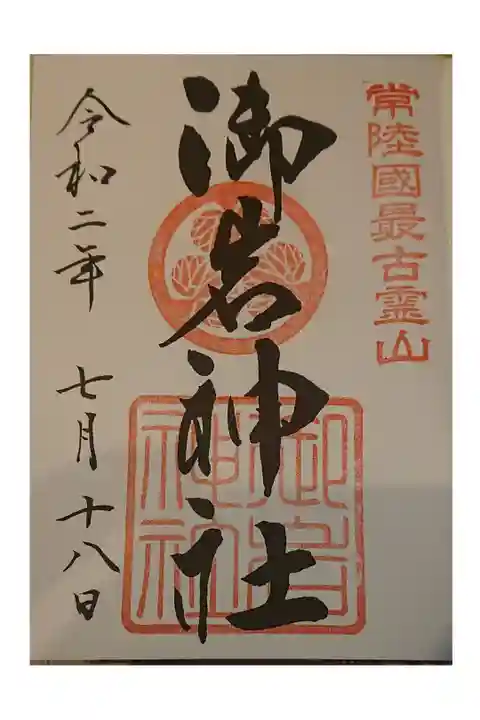 常陸國最古霊山
御岩神社
御岩
神社
令和二年 七月十八日